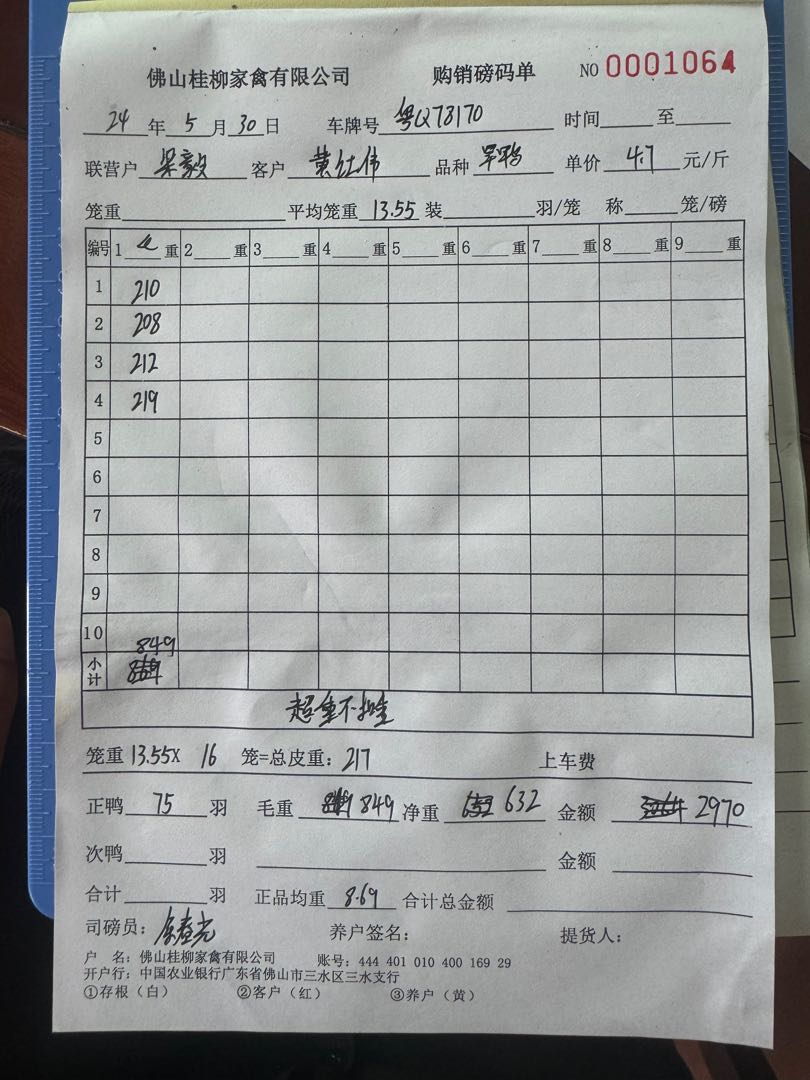 佛山桂柳家禽有限公司 购销磅码单 NO 0001064
24 年 5 月 30 日 车牌号 粤Q73170 时间 至
联营户 梁毅 客户 黄仕伟 品种 单价 4.7 元/斤
笼重 平均笼重 13.55 装 羽/笼 称 笼/磅
编号 1 4 重 2 重 3 重 4 重 5 重 6 重 7 重 8 重 9 重
1 210
2 208
3 212
4 219
5
6
7
8
9
10
849
小计
超重不拉重
笼重 13.55X 16 笼=总皮重: 217 上车费
正鸭 75 羽 毛重 849 净重 632 金额 2970
次鸭 羽 金额
合计 羽 正品均重 8.69 合计总金额
司磅员: 养户签名: 提货人:
户 名: 佛山桂柳家禽有限公司 账号: 444 401 010 400 169 29
开户行: 中国农业银行广东省佛山市三水区三水支行
①存根(白) ②客户(红) ③养户(黄)